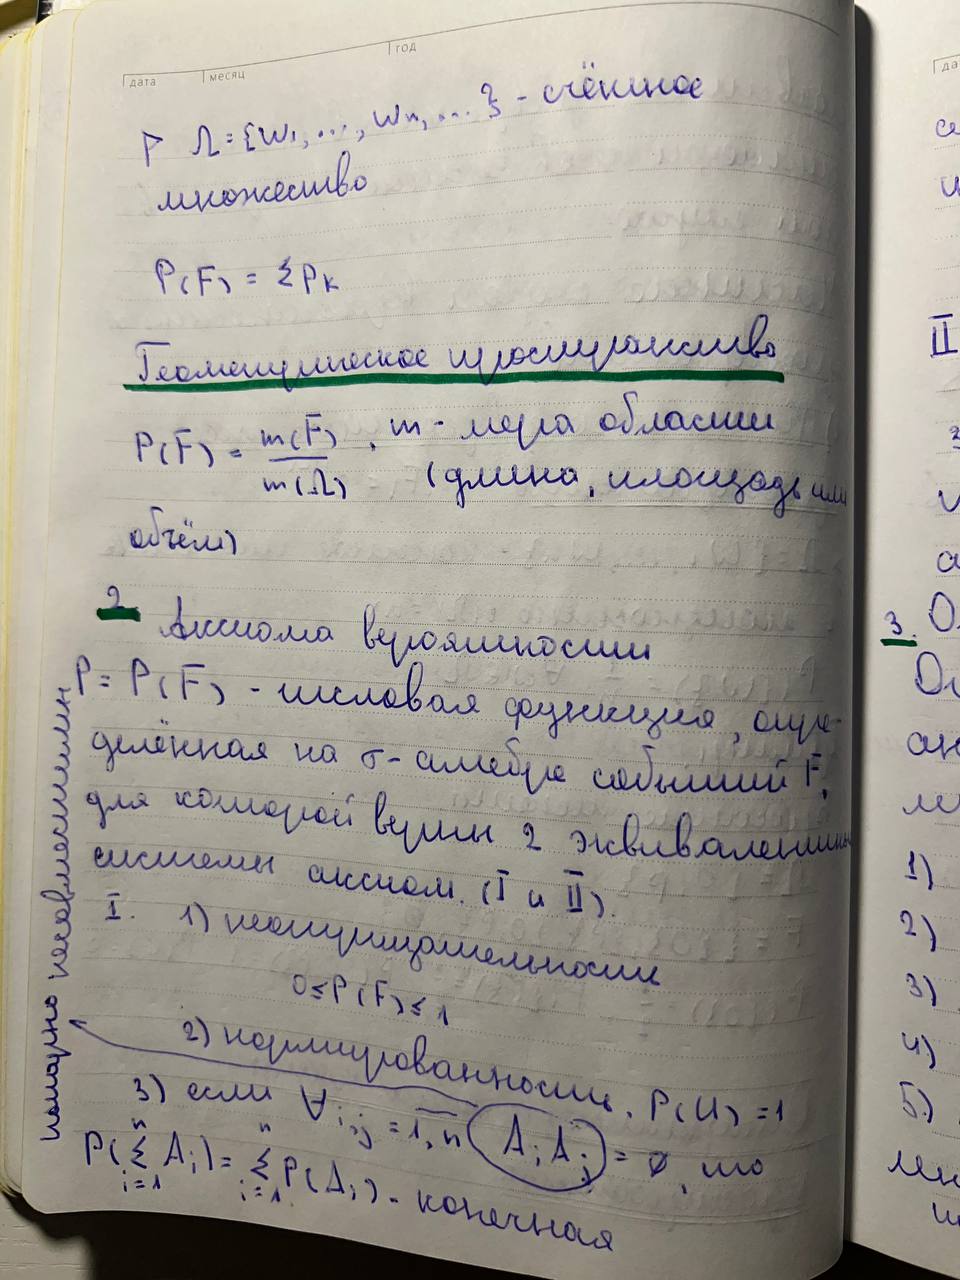 дата месяц год
Г Ω = {ω₁, ..., ωₙ, ...} - счётное
множество
P(F) = Σ Pₖ
Геометрическое пространство
P(F) = m(F)/m(Ω), m - мера области
(длина, площадь или
объём)
2. Аксиома вероятности
P = P(F) - числовая функция, опре-
делённая на σ-алгебре событий F,
для которой верны 2 эквивалентные
системы аксиом. (I и II).
I. 1) неотрицательность
0 ≤ P(F) ≤ 1
2) нормированность. P(U) = 1
3) если ∀ i,j = 1,n AᵢAⱼ = ∅, то
P(Σ Aᵢ) = Σ P(Aᵢ) - конечная
n i=1 n i=1
попарно несовместимы
да
II
3. О
1)
2)
3)
4)
5)